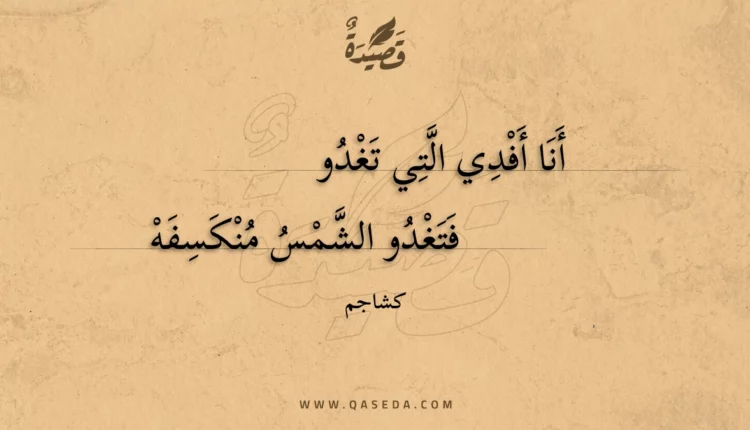 قَصِيدَةٌ
أَنَا أَفْدِي الَّتِي تَغْدُو
فَتَغْدُو الشَّمْسُ مُنْكَسِفَهْ
كشاجم
WWW.QASEDA.COM